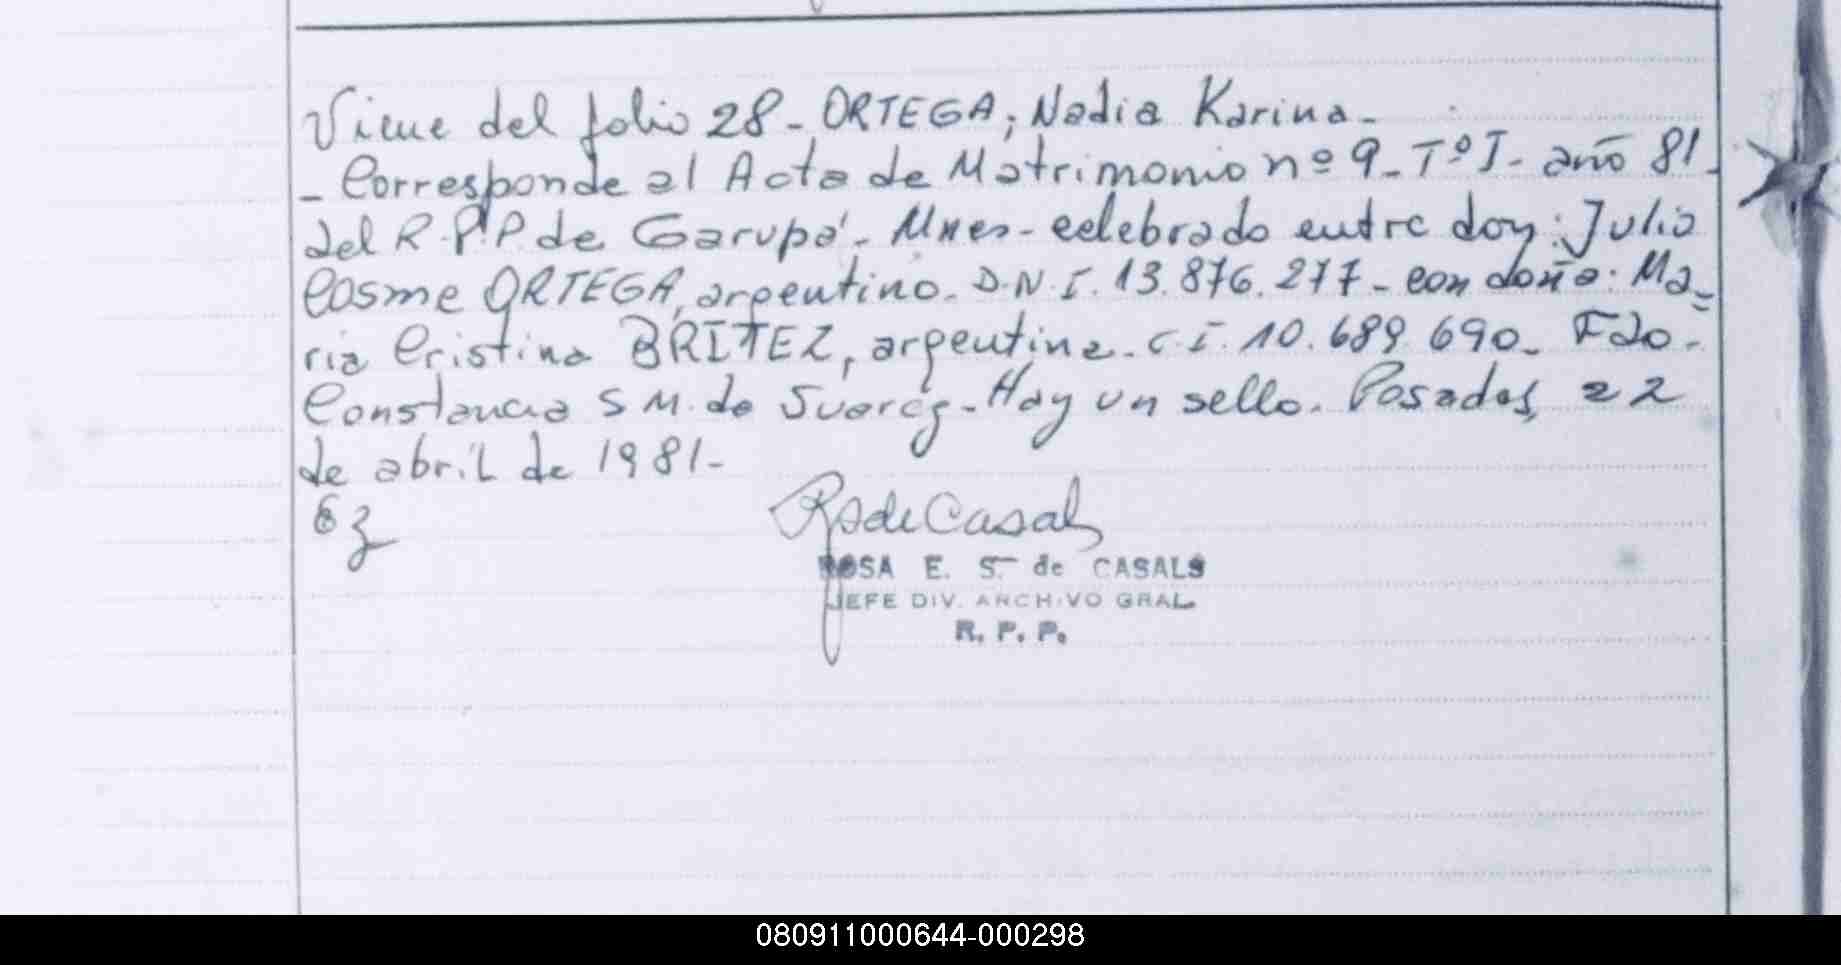 Viene del folio 28 - ORTEGA, Nadia Karina -
- Corresponde al Acta de Matrimonio nº 9 - Tº I - año 81 -
del R.P.P. de Garupá - Mnes - celebrado entre don: Julio
Cosme ORTEGA, argentino - D.N.I. 13.876.277 - con doña: Ma=
ria Cristina BRITEZ, argentina - C.I. 10.689.690 - Fdo -
Constancia S M. de Suarez - Hay un sello. Posadas, 22
de abril de 1981 -
RSdeCasals
ROSA E. S. de CASALS
JEFE DIV. ARCHIVO GRAL.
R. P. P.
080911000644-000298